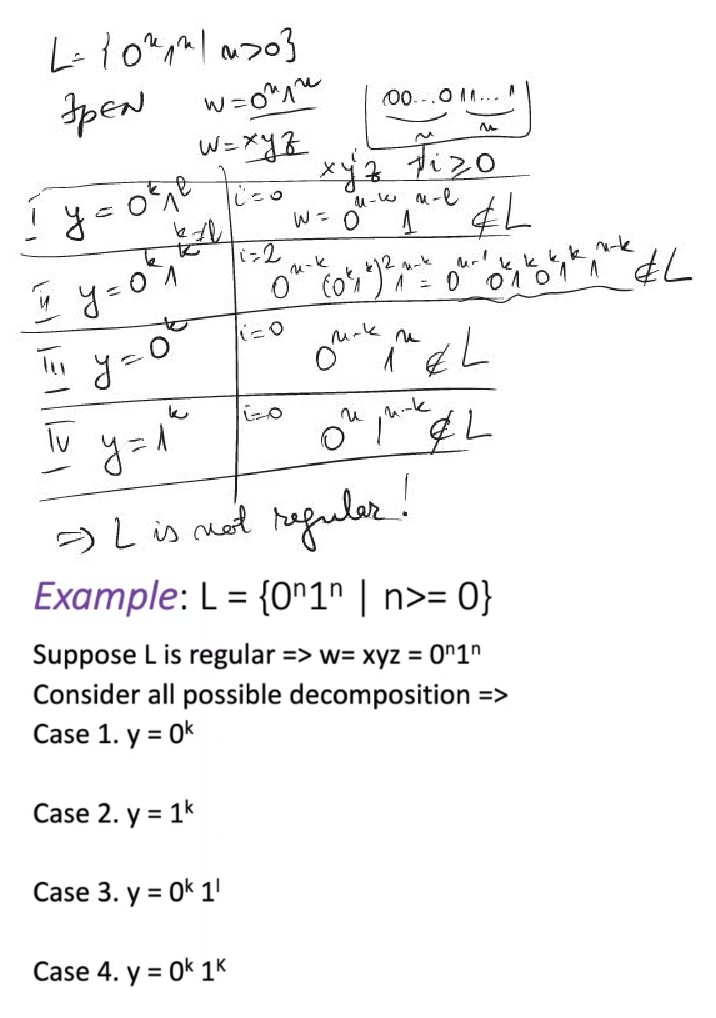 L = {0ⁿ1ⁿ | n>0}
∃p∈N w=0ⁿ1ⁿ 00...011...1
n n
w=xyz
xyⁱz ∀i≥0
I y=0ᵏ1ˡ i=0 w=0ⁿ⁻ᵏ1ⁿ⁻ˡ ∉L
k≠l
II y=0ᵏ1ᵏ i=2 0ⁿ⁻ᵏ(0ᵏ1ᵏ)²1ⁿ⁻ᵏ = 0ⁿ⁻ᵏ0ᵏ1ᵏ0ᵏ1ᵏ1ⁿ⁻ᵏ ∉L
III y=0ᵏ i=0 0ⁿ⁻ᵏ1ⁿ ∉L
IV y=1ᵏ i=0 0ⁿ1ⁿ⁻ᵏ ∉L
=> L is not regular!
Example: L = {0ⁿ1ⁿ | n>= 0}
Suppose L is regular => w= xyz = 0ⁿ1ⁿ
Consider all possible decomposition =>
Case 1. y = 0ᵏ
Case 2. y = 1ᵏ
Case 3. y = 0ᵏ 1ˡ
Case 4. y = 0ᵏ 1ᴷ